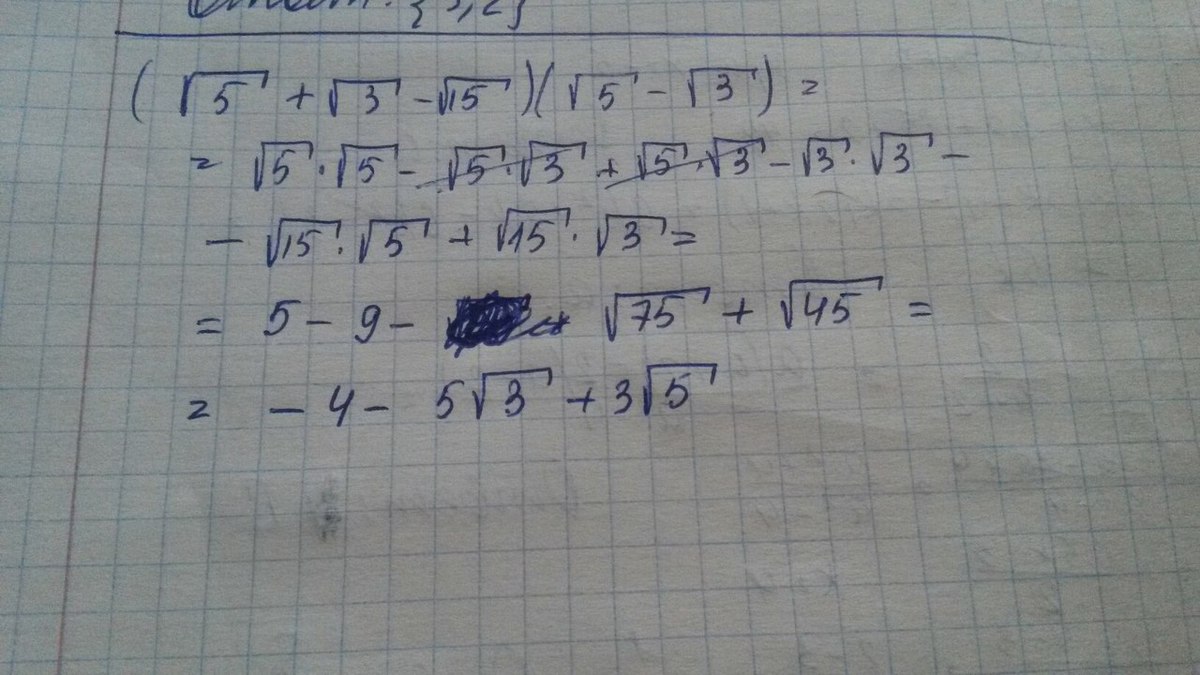 (√5 + √3 - √15)(√5 - √3) =
= √5 · √5 - √5 · √3 + √5 · √3 - √3 · √3 -
- √15 · √5 + √15 · √3 =
= 5 - 9 - √75 + √45 =
= - 4 - 5√3 + 3√5